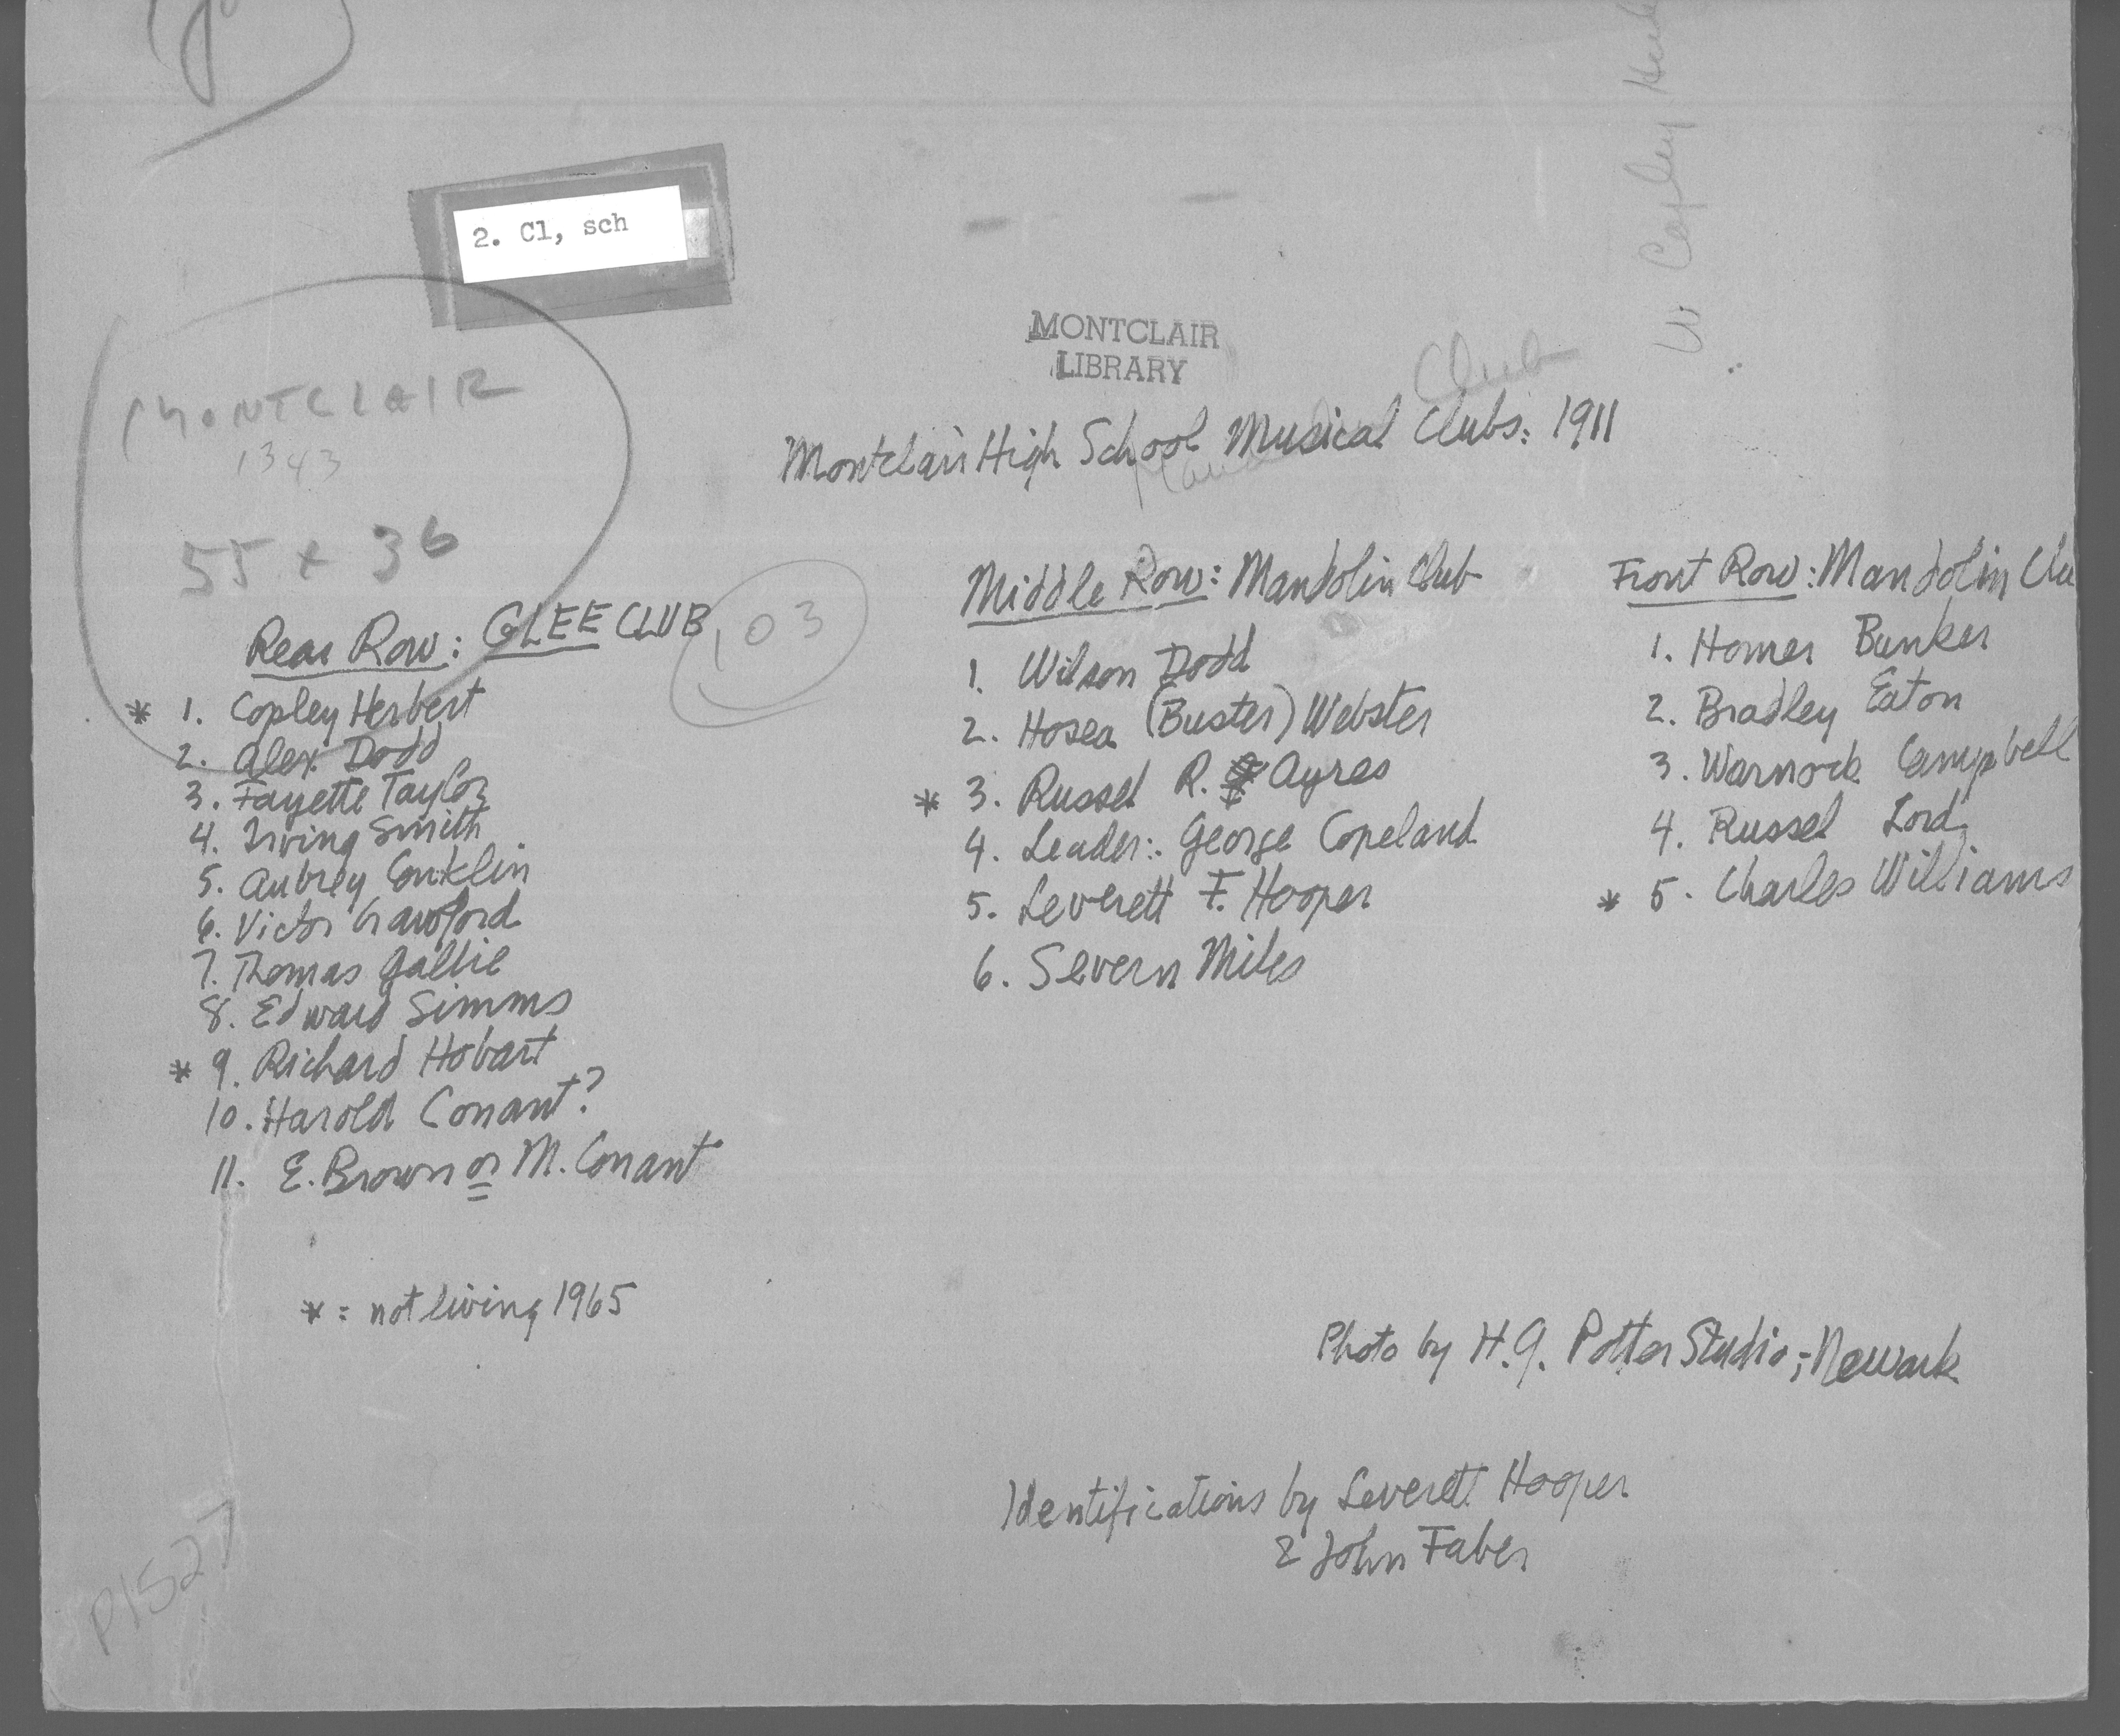 2. Cl, sch
W Copley
MONTCLAIR
LIBRARY
Club
Montclair High School Musical Clubs: 1911
MONTCLAIR
1343
55 x 36
103
Rear Row: GLEE CLUB
* 1. Copley Herbert
2. Alex Dodd
3. Fayette Taylor
4. Irving Smith
5. Aubrey Conklin
6. Victor Crawford
7. Thomas Gallie
8. Edward Simms
* 9. Richard Hobart
10. Harold Conant?
11. E. Brown or M. Conant
* = not living 1965
Middle Row: Mandolin Club
1. Wilson Dodd
2. Hosea (Buster) Webster
* 3. Russel R. Ayres
4. Leader: George Copeland
5. Leverett F. Hooper
6. Severn Miles
Front Row: Mandolin Clu
1. Homer Bunker
2. Bradley Eaton
3. Warnock Campbell
4. Russel Lord
* 5. Charles Williams
Photo by H.G. Potter Studio; Newark
Identifications by Leverett Hooper
& John Faber
P1527